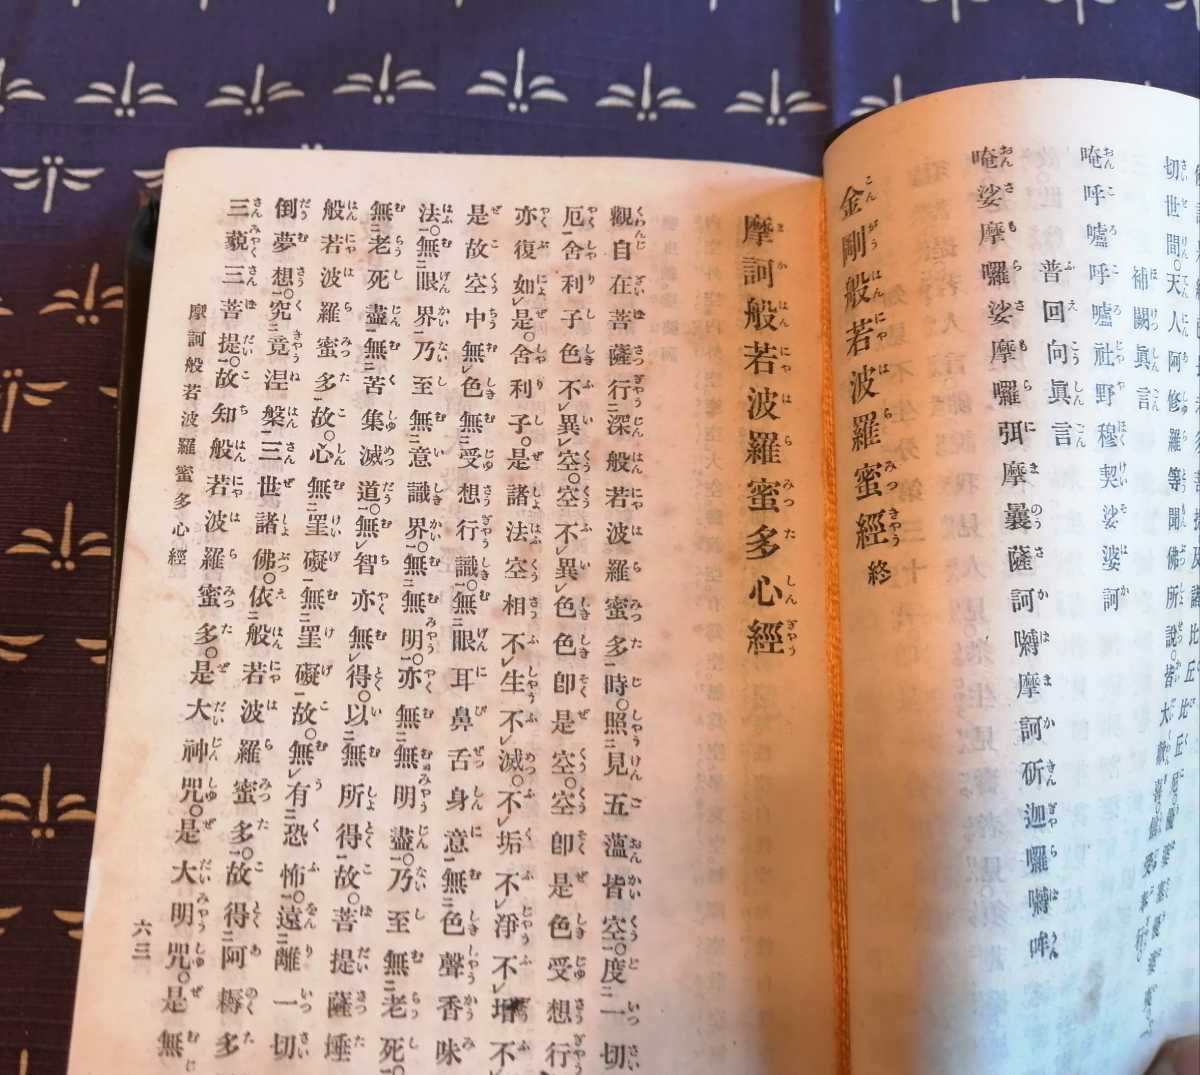 切世間。天人阿修羅等聞佛所說。皆大歡喜。信受奉行。
補闕眞言
唵呼嚧呼嚧社野穆契娑婆訶
普回向眞言
唵娑摩囉娑摩囉弭摩曩薩訶嚩摩訶斫迦囉嚩吽
金剛般若波羅蜜經終
摩訶般若波羅蜜多心經
觀自在菩薩行深般若波羅蜜多時。照見五薀皆空。度一切
厄舍利子色不異空。空不異色色卽是空。空卽是色受想行
亦復如是。舍利子。是諸法空相不生不滅。不垢不淨不增不
是故空中無色無受想行識。無眼耳鼻舌身意無色聲香味
法。無眼界乃至無意識界。無無明。亦無無明盡。乃至無老死。
無老死盡無苦集滅道。無智亦無得。以無所得故。菩提薩埵
般若波羅蜜多故。心無罣礙無罣礙故。無有恐怖。遠離一切
倒夢想。究竟涅槃三世諸佛。依般若波羅蜜多。故得阿耨多
三藐三菩提。故知般若波羅蜜多。是大神咒。是大明咒。是無
摩訶般若波羅蜜多心經
六三